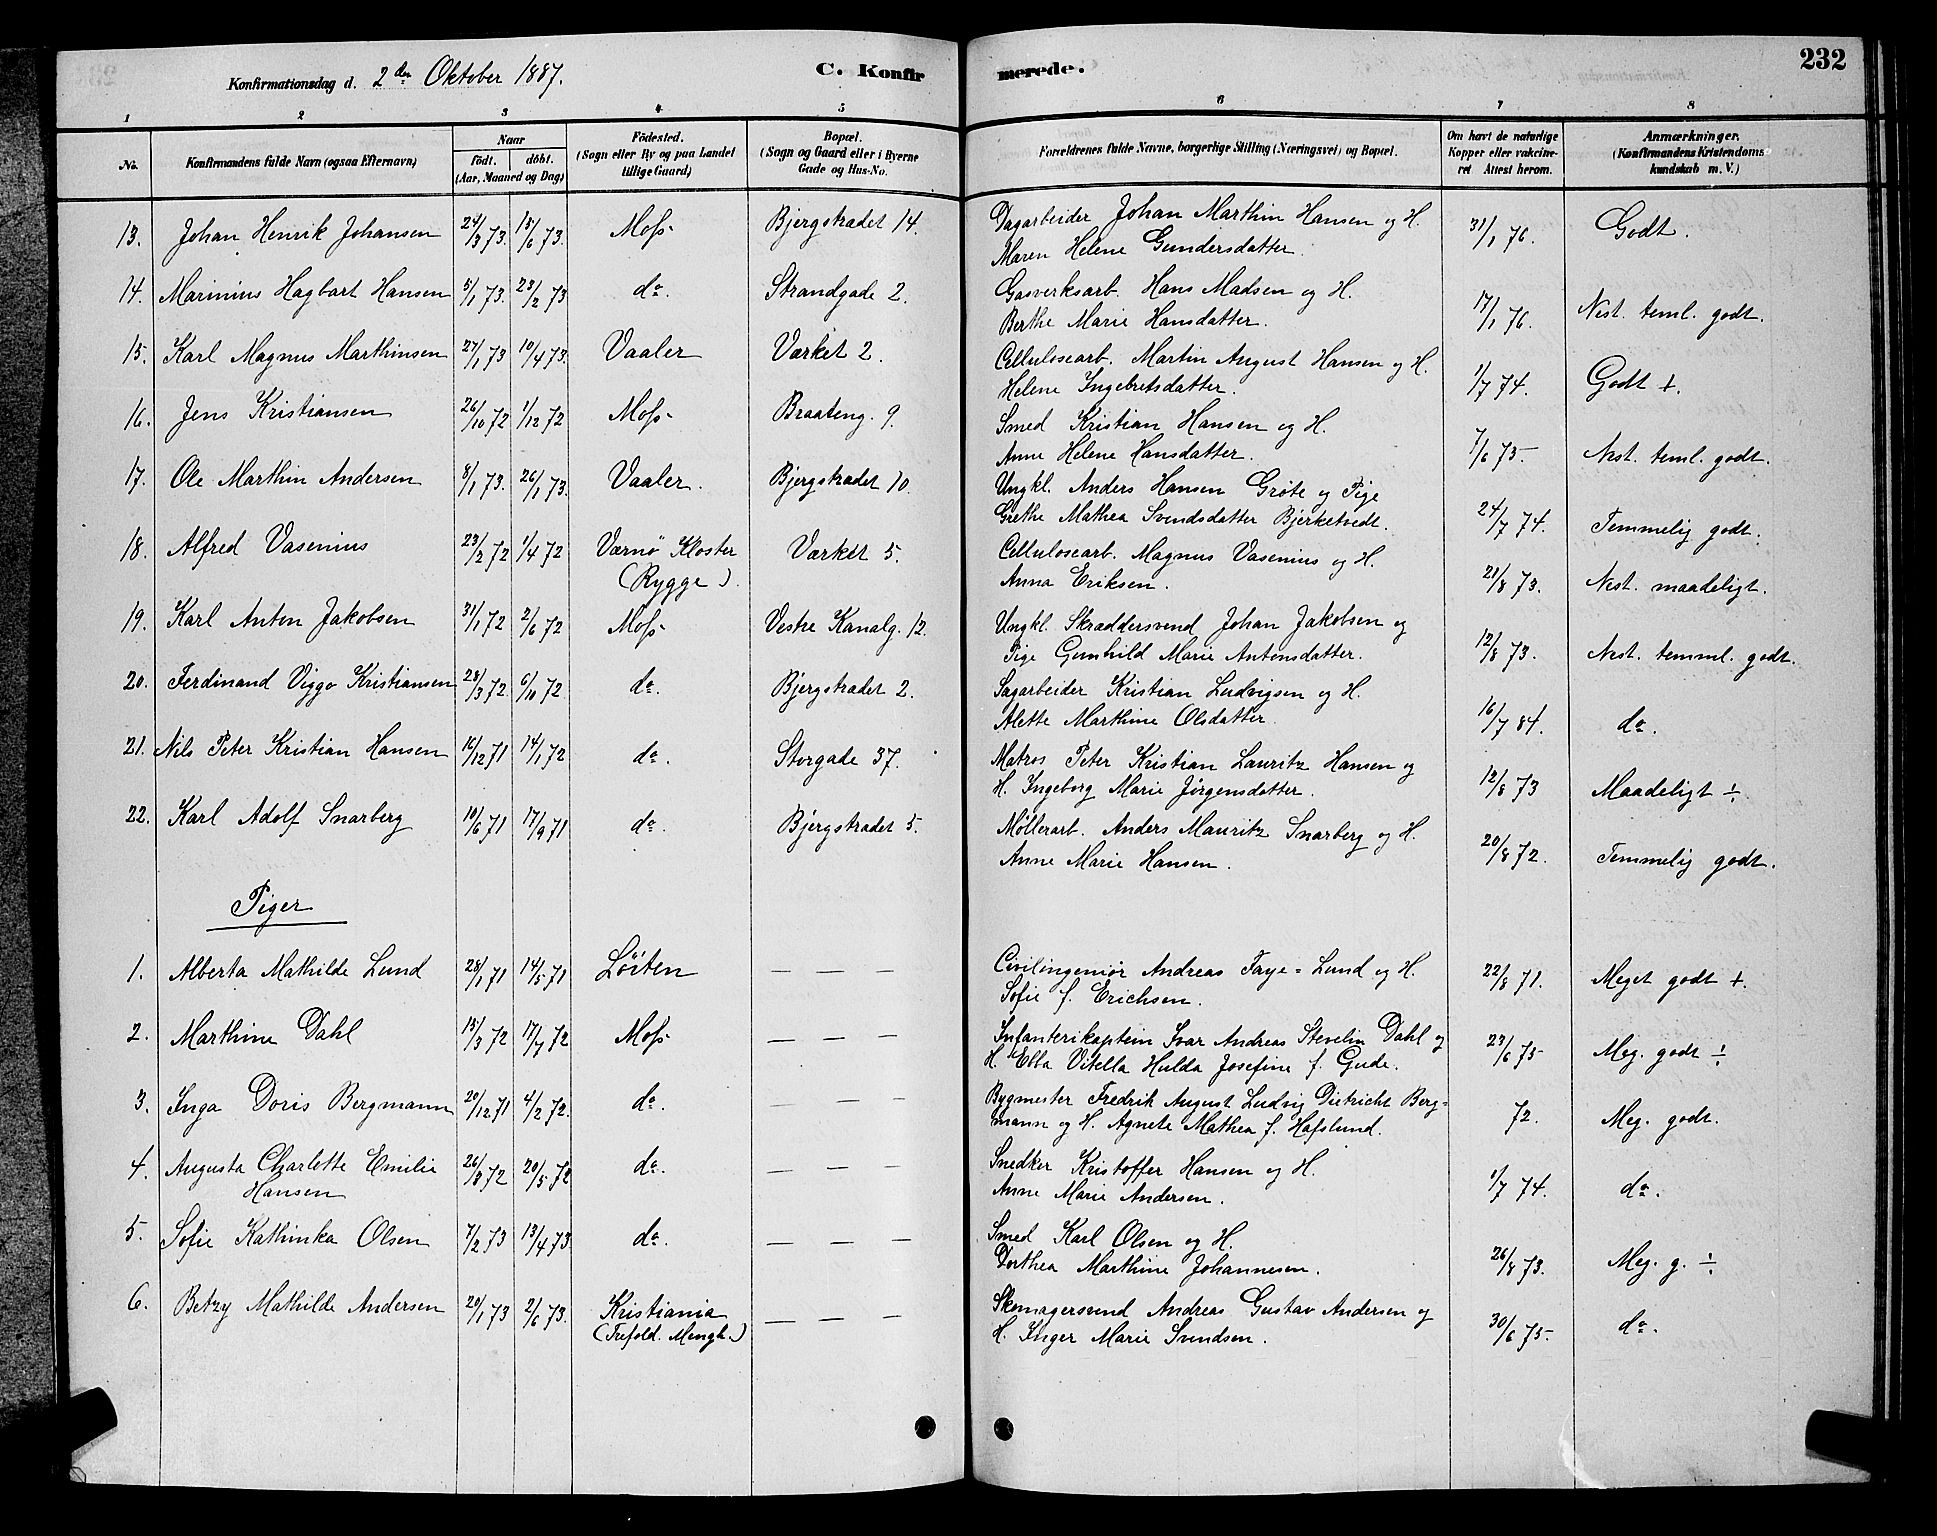 Konfirmationsdag d. 2den Oktober 1887. C. Konfirmerede. 232
1 2 3 4 5 6 7 8
No. Konfirmandens fulde Navn (ogsaa Efternavn) Naar födt. döbt. (Aar, Maaned og Dag) Födested. (Sogn eller By og paa Landet tillige Gaard) Bopæl. (Sogn og Gaard eller i Byerne Gade og Hus-No. Forældrenes fulde Navne, borgerlige Stilling (Næringsvei) og Bopæl. Om havt de naturlige Kopper eller vakcineret Attest herom. Anmærkninger. (Konfirmandens Kristendomskundskab m. V.)
13. Johan Henrik Johansen 24/3 73. 15/6 73. Moss Bjergstrædet 14. Dagarbeider Johan Marthin Hansen og H.
Maren Helene Gundersdatter. 31/1 76. Godt.
14. Marinius Hagbart Hansen 5/1 73. 23/2 73 do. Strandgade 2. Gasverksarb. Hans Madsen og H.
Berthe Marie Hansdatter. 17/1 76. Nest. teml. godt.
15. Karl Magnus Marthinsen 27/1 73 10/4 73. Vaaler Værket 2. Cellulosearb. Martin August Hansen og H.
Helene Ingebretsdatter. 1/7 74. Godt +.
16. Jens Kristiansen 26/10 72 1/12 72 Moss Braateng. 9. Smed Kristian Hansen og H.
Anne Helene Hansdatter. 7/6 75. Nest. teml. godt.
17. Ole Marthin Andersen 8/1 73. 26/1 73. Vaaler. Bjergstrædet 10. Ungkl. Anders Hansen Grøte og Pige
Grethe Mathea Svendsdatter Bjerketvedt. 24/7 74. Temmelig godt.
18. Alfred Vasenius 23/2 72 1/4 72 Værnø Kloster Værket 5. Cellulosearb. Magnus Vasenius og H.
(Rygge). Anna Eriksen. 21/8 73. Nest. maadeligt.
19. Karl Anton Jakobsen 31/1 72 2/6 72 Moss Vestre Kanalg. 12. Ungkl. Skræddersvend Johan Jakobsen og
Pige Gunhild Marie Antonsdatter. 12/8 73. Nest. temml. godt.
20. Ferdinand Viggo Kristiansen 28/3 72. 6/10 72. do. Bjergstrædet 2. Sagarbeider Kristian Ludvigsen og H.
Alette Marthine Olsdatter. 16/7 84. do.
21. Nils Peter Kristian Hansen 16/12 71 14/1 72 do. Storgade 37. Matros Peter Kristian Lauritz Hansen og
H. Ingeborg Marie Jørgensdatter. 12/8 73 Maadeligt ÷.
22. Karl Adolf Snarberg 10/6 71 17/9 71 do. Bjergstrædet 5. Møllerarb. Anders Mauritz Snarberg og H.
Anne Marie Hansen. 20/8 72. Temmelig godt.
Piger
1. Alberta Mathilde Lund 28/1 71 14/5 71 Löiten — — — Civilingeniør Andreas Faye=Lund og H.
Sofie f. Erichsen. 22/8 71. Meget godt +.
2. Marthine Dahl 13/3 72 17/7 72 Moss — — — Infanterikaptein Ivar Andreas Stevelin Dahl og
H. Ebba Vitella Hulda Josefine f. Gude. 23/6 75 Meg. godt ÷
3. Inga Doris Bergmann 20/12 71 4/2 72. do. — — — Bygmester Fredrik August Ludvig Dietricht Berg=
mann og H. Agnete Mathea f. Hafslund. 72. Meg. godt.
4. Augusta Charlotte Emilie 26/3 72 20/5 72 do. — — — Snedker Kristoffer Hansen og H.
Hansen Anne Marie Andersen. 1/7 74. do.
5. Sofie Kathinka Olsen 7/2 73 13/4 73 do. — — — Smed Karl Olsen og H.
Dorthea Marthine Johannesen. 26/8 73. Meg. g. ÷.
6. Betzy Mathilde Andersen 20/1 73 2/6 73. Kristiania — — — Skomagersvend Andreas Gustav Andersen og
(Trefold. Mengh.) H. Inger Marie Svendsen. 30/6 75. do.